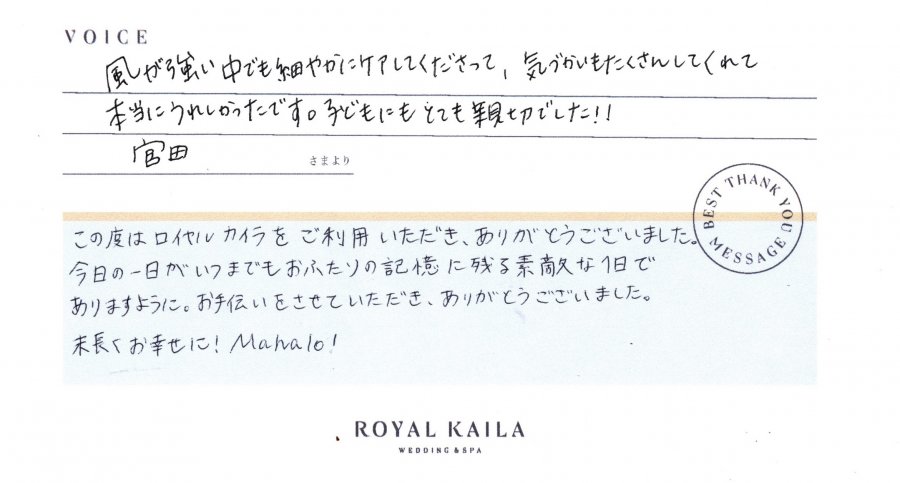 VOICE
風が強い中でも細やかにケアしてくださって、気づかいもたくさんしてくれて
本当にうれしかったです。子どもにもとても親切でした!!
宮田 さまより
BEST THANK YOU MESSAGE
この度はロイヤルカイラをご利用いただき、ありがとうございました。
今日の一日がいつまでもおふたりの記憶に残る素敵な1日で
ありますように。お手伝いをさせていただき、ありがとうございました。
末長くお幸せに! Mahalo!
ROYAL KAILA
WEDDING & SPA